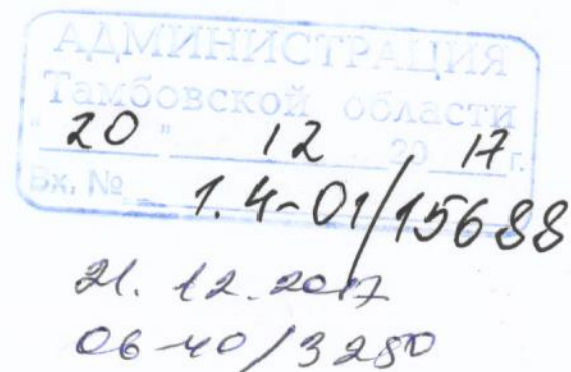 АДМИНИСТРАЦИЯ
Тамбовской области
"20" 12 2017 г.
Вх. № 1.4-01/15688
21.12.2017
06-40/3280